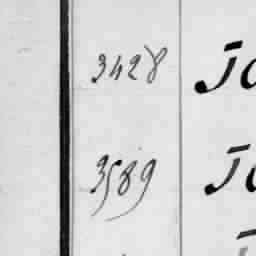 3428 Jo
3589 Jo